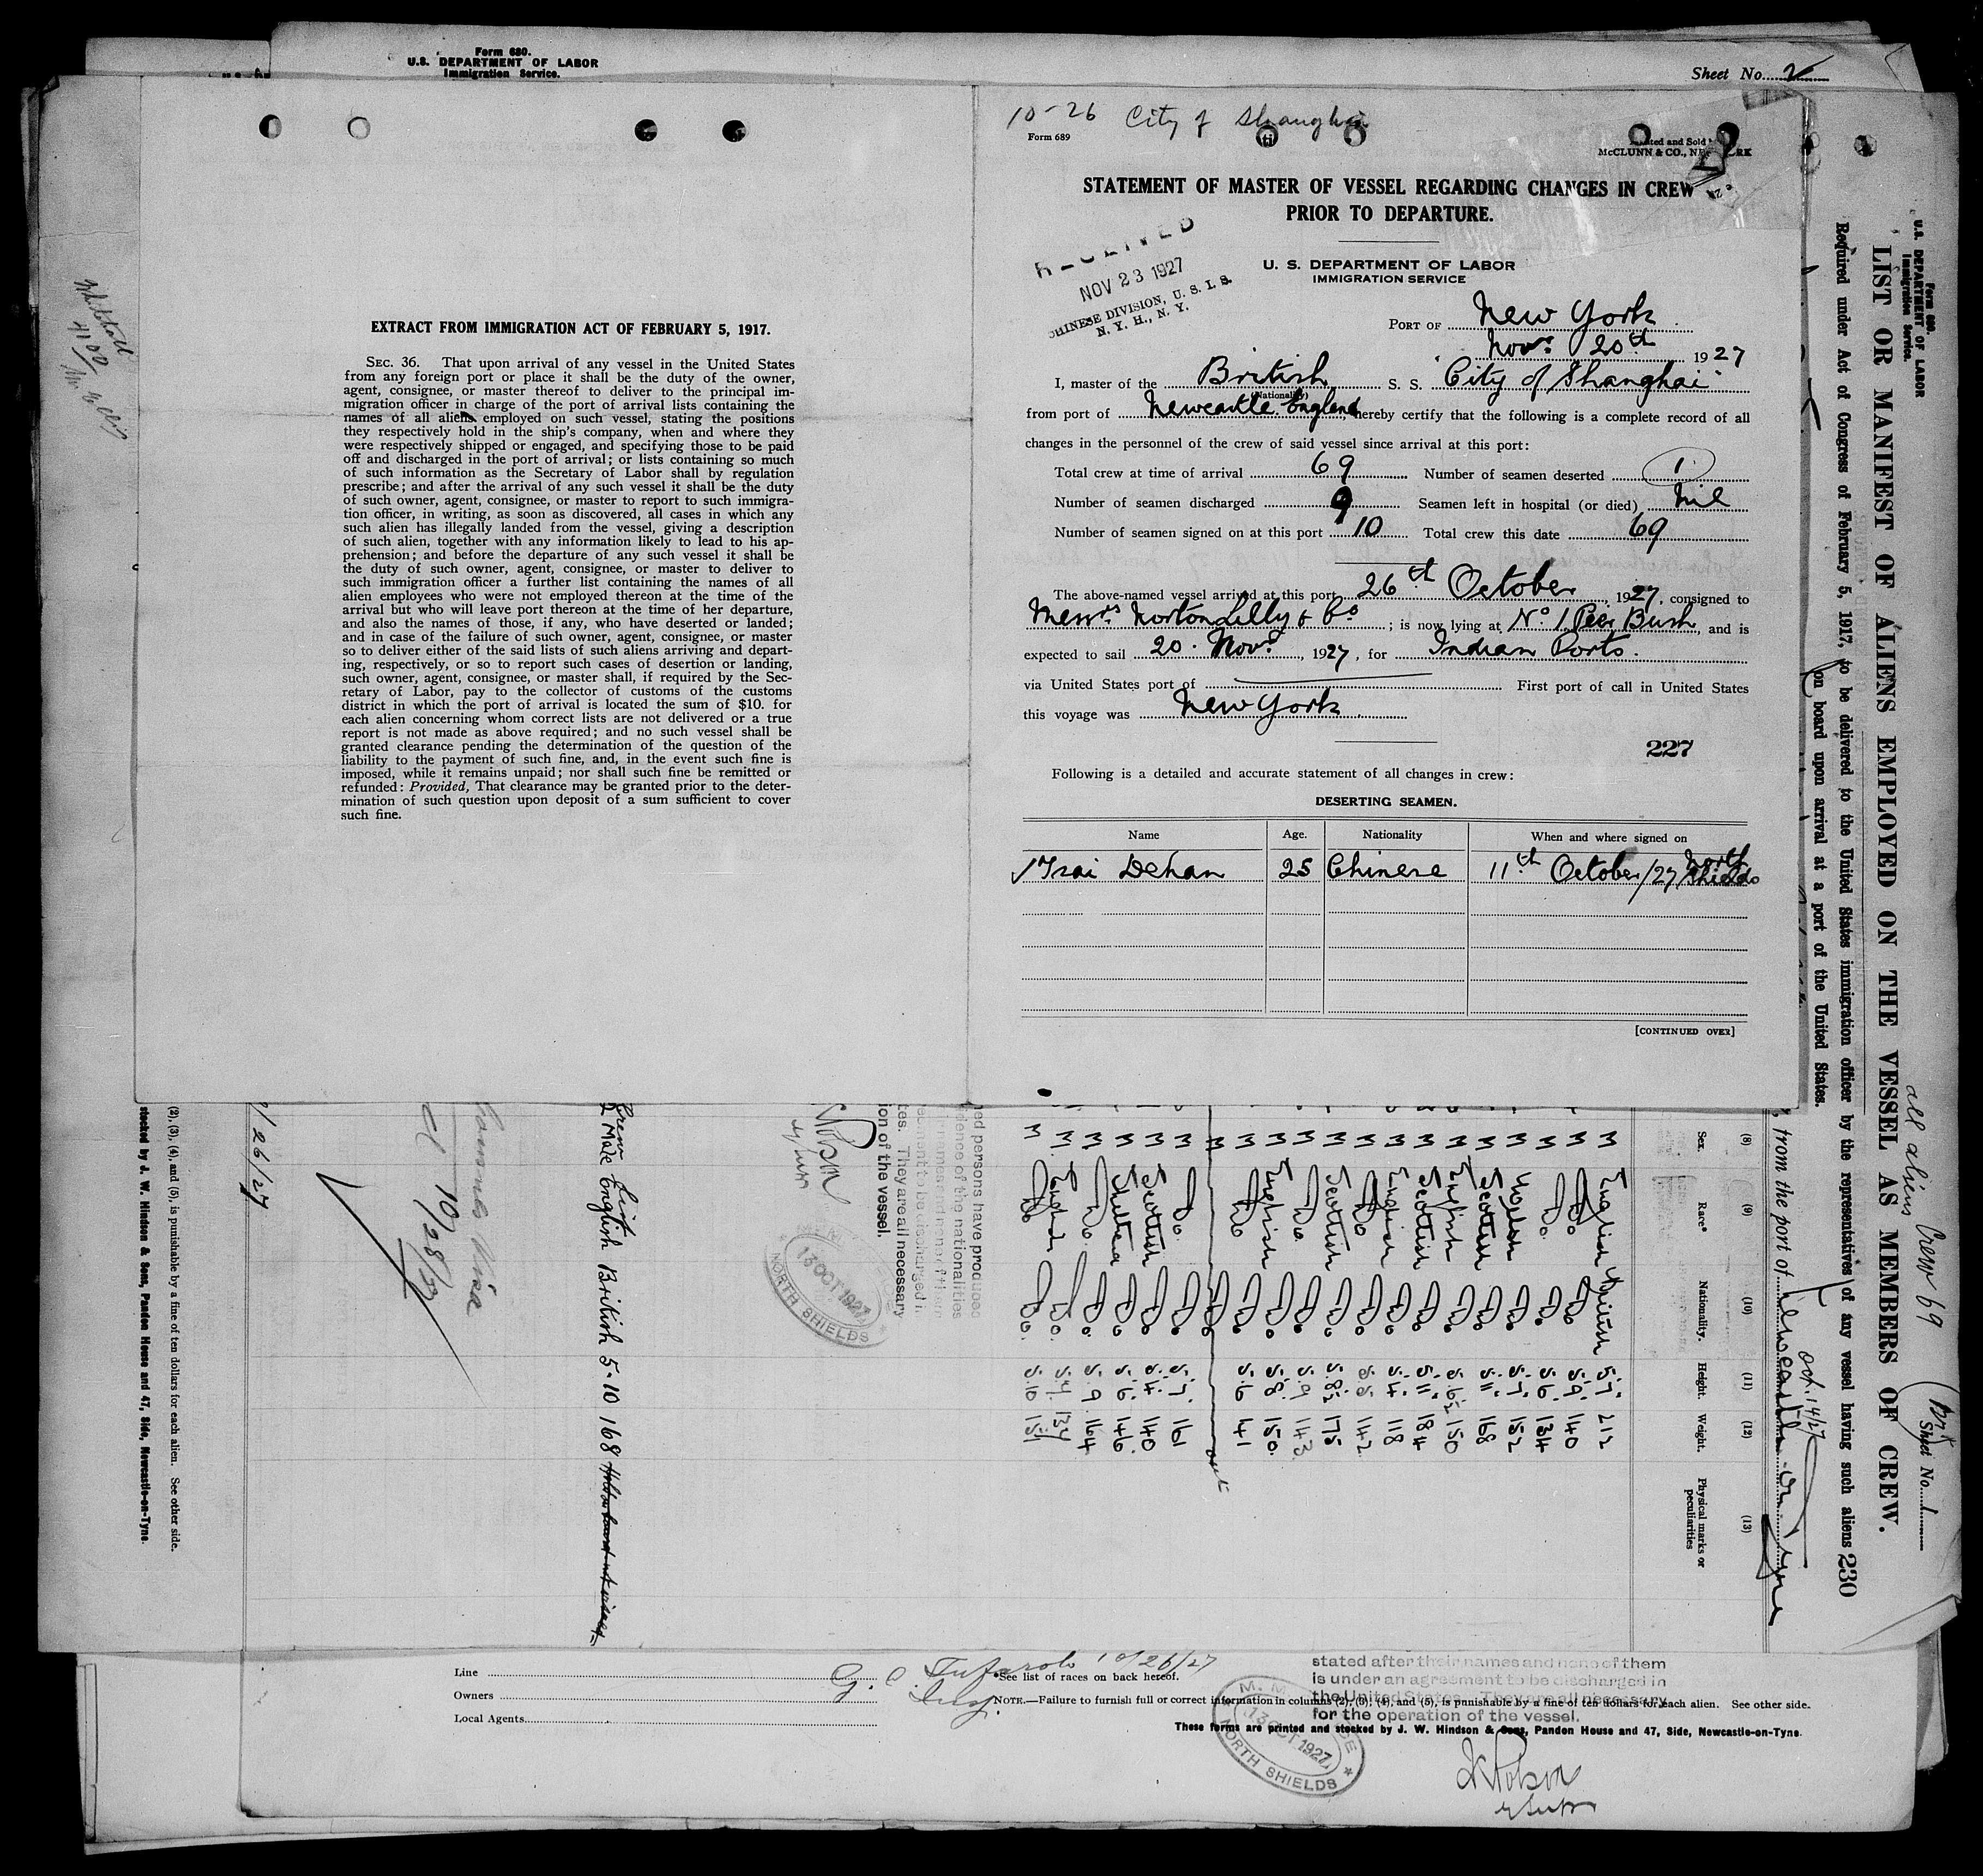 Form 680.
U.S. DEPARTMENT OF LABOR
Immigration Service.
Sheet No. 2
EXTRACT FROM IMMIGRATION ACT OF FEBRUARY 5, 1917.
SEC. 36. That upon arrival of any vessel in the United States
from any foreign port or place it shall be the duty of the owner,
agent, consignee, or master thereof to deliver to the principal im-
migration officer in charge of the port of arrival lists containing the
names of all aliens employed on such vessel, stating the positions
they respectively hold in the ship's company, when and where they
were respectively shipped or engaged, and specifying those to be paid
off and discharged in the port of arrival; or lists containing so much
of such information as the Secretary of Labor shall by regulation
prescribe; and after the arrival of any such vessel it shall be the duty
of such owner, agent, consignee, or master to report to such immigra-
tion officer, in writing, as soon as discovered, all cases in which any
such alien has illegally landed from the vessel, giving a description
of such alien, together with any information likely to lead to his ap-
prehension; and before the departure of any such vessel it shall be
the duty of such owner, agent, consignee, or master to deliver to
such immigration officer a further list containing the names of all
alien employees who were not employed thereon at the time of the
arrival but who will leave port thereon at the time of her departure,
and also the names of those, if any, who have deserted or landed;
and in case of the failure of such owner, agent, consignee, or master
so to deliver either of the said lists of such aliens arriving and depart-
ing, respectively, or so to report such cases of desertion or landing,
such owner, agent, consignee, or master shall, if required by the Sec-
retary of Labor, pay to the collector of customs of the customs
district in which the port of arrival is located the sum of $10. for
each alien concerning whom correct lists are not delivered or a true
report is not made as above required; and no such vessel shall be
granted clearance pending the determination of the question of the
liability to the payment of such fine, and, in the event such fine is
imposed, while it remains unpaid; nor shall such fine be remitted or
refunded: Provided, That clearance may be granted prior to the deter-
mination of such question upon deposit of a sum sufficient to cover
such fine.
10-26 City of Shanghai
Form 689
McCLUNN & CO.,
STATEMENT OF MASTER OF VESSEL REGARDING CHANGES IN CREW
PRIOR TO DEPARTURE.
RECEIVED
NOV 23 1927
CHINESE DIVISION, U. S. I. S.
N. Y. H., N. Y.
U. S. DEPARTMENT OF LABOR
IMMIGRATION SERVICE
PORT OF New York
Novr. 20th 1927
I, master of the British S. S. "City of Shanghai"
(Nationality)
from port of Newcastle England hereby certify that the following is a complete record of all
changes in the personnel of the crew of said vessel since arrival at this port:
Total crew at time of arrival 69 Number of seamen deserted 1
Number of seamen discharged 9 Seamen left in hospital (or died) nil
Number of seamen signed on at this port 10 Total crew this date 69
The above-named vessel arrived at this port 26th October, 1927, consigned to
Messrs. Norton Lilly & Co; is now lying at No 1 Pier Bush, and is
expected to sail 20. Novr., 1927, for Indian Ports.
via United States port of First port of call in United States
this voyage was New York
227
Following is a detailed and accurate statement of all changes in crew:
DESERTING SEAMEN.
Name Age. Nationality When and where signed on
1 Tsai Dehan 25 Chinese 11th October/27 North Shields
[CONTINUED OVER]
Form 680.
U.S. DEPARTMENT OF LABOR
Immigration Service.
all aliens Crew 69
Sheet No. 1
LIST OR MANIFEST OF ALIENS EMPLOYED ON THE VESSEL AS MEMBERS OF CREW.
Required under Act of Congress of February 5, 1917, to be delivered to the United States immigration officer by the representatives of any vessel having such aliens 230
on board upon arrival at a port of the United States.
, from the port of Newcastle on Tyne
Oct. 14/27
(8) (9) (10) (11) (12) (13)
Sex. Race* Nationality. Height. Weight. Physical marks or peculiarities
M English British 5.7. 212
M Do. Do. 5.9. 140
M Do. Do. 5.6. 134
M Welsh Do. 5.7. 152
M Scottish Do. 5.11. 168
M English Do. 5.6½ 150
M Scottish Do. 5.11. 184
M English Do. 5.4. 118
M Do. Do. 5.5 142
M Scottish Do. 5.8½ 175
M Do. Do. 5.9 143.
M English Do. 5.8. 150.
M Do. Do. 5.6 141
M Do. Do. 5.7. 161
M Scottish Do. 5.4. 140
M Do. 5.6. 146.
M Do. Do. 5.9 164
M English Do. 5.4 134
M Do. Do. 5.10 151
ned persons have produced
of the nationalities
tes. They are all necessary
ion of the vessel.
13 OCT 1927
NORTH SHIELDS
Crew List
Male English British 5-10 168
10/28/27
/26/27
(2), (3), (4), and (5), is punishable by a fine of ten dollars for each alien. See other side.
stocked by J. W. Hindson & Sons, Pandon House and 47, Side, Newcastle-on-Tyne.
Line
Owners
Local Agents
10/26/27
*See list of races on back hereof.
Insp.
NOTE.—Failure to furnish full or correct information in columns (2), (3), (4), and (5), is punishable by a fine of ten dollars for each alien. See other side.
These forms are printed and stocked by J. W. Hindson & Sons, Pandon House and 47, Side, Newcastle-on-Tyne.
stated after their names and none of them
is under an agreement to be discharged in
the United States. They are all necessary
for the operation of the vessel.
13 OCT 1927
NORTH SHIELDS